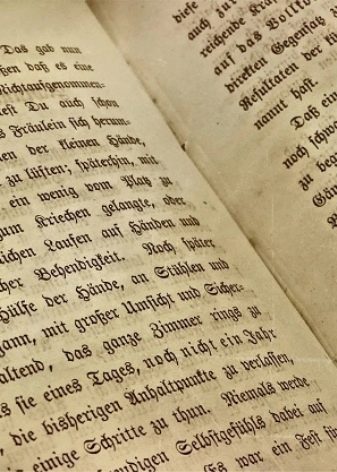 Das gab nun
ßen daß es eine
Nichtaufgenommen-
ließ Du auch schon
s Fräulein sich herum-
en der kleinen Hände,
zu lüften; späterhin, mit
ein wenig vom Platz zu
zum Kriechen gelangte, oder
lichen Laufen auf Händen und
cher Behendigkeit. Noch später
Hülfe der Hände, an Stühlen und
gann, mit großer Umsicht und Sicher-
altend, das ganze Zimmer rings zu
s sie eines Tages, noch nicht ein Jahr
, die bisherigen Anhaltpunkte zu verlassen,
einige Schritte zu thun. Niemals werde
eudigen Selbstgefühls dabei auf
Es war ein Fest für
diese
auch zur
reichende Kraft
auf das Vollko
direkten Gegensatz z
Resultaten der kü
nannt hast.
Daß ein
noch schw
zu beg
Gän